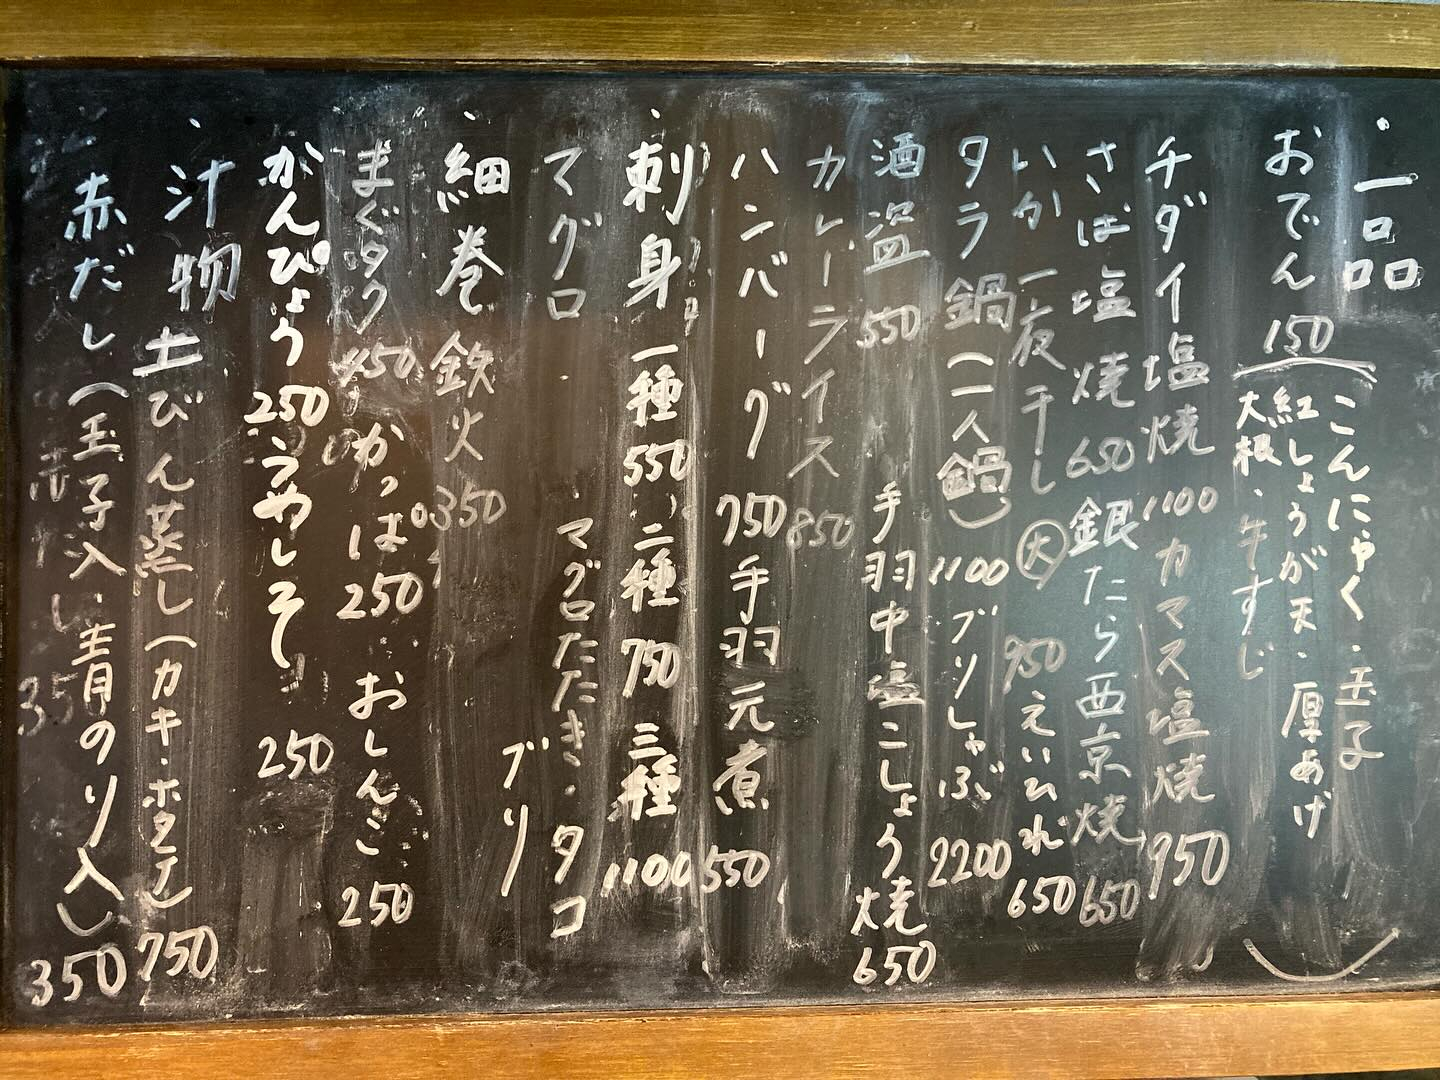 ・一品
おでん 150 (こんにゃく・玉子
紅しょうが天・厚あげ
大根・牛すじ)
チダイ塩焼 1100 カマス塩焼 950
さば塩焼 650 銀たら西京焼 650
いか一夜干し 大 950 えいひれ 650
タラ鍋(一人鍋) 1100 ブリしゃぶ 2200
酒盗 550 手羽中塩こしょう焼 650
カレーライス 850
ハンバーグ 750 手羽元煮 550
・刺身 一種 550 二種 750 三種 1100
マグロ・マグロたたき・タコ
ブリ
・細巻 鉄火 350
まぐタク 450 かっぱ 250 おしんこ 250
かんぴょう 250 うやしそ 250
・汁物 土びん蒸し(カキ・ホタテ) 750
赤だし(玉子入・青のり入) 350